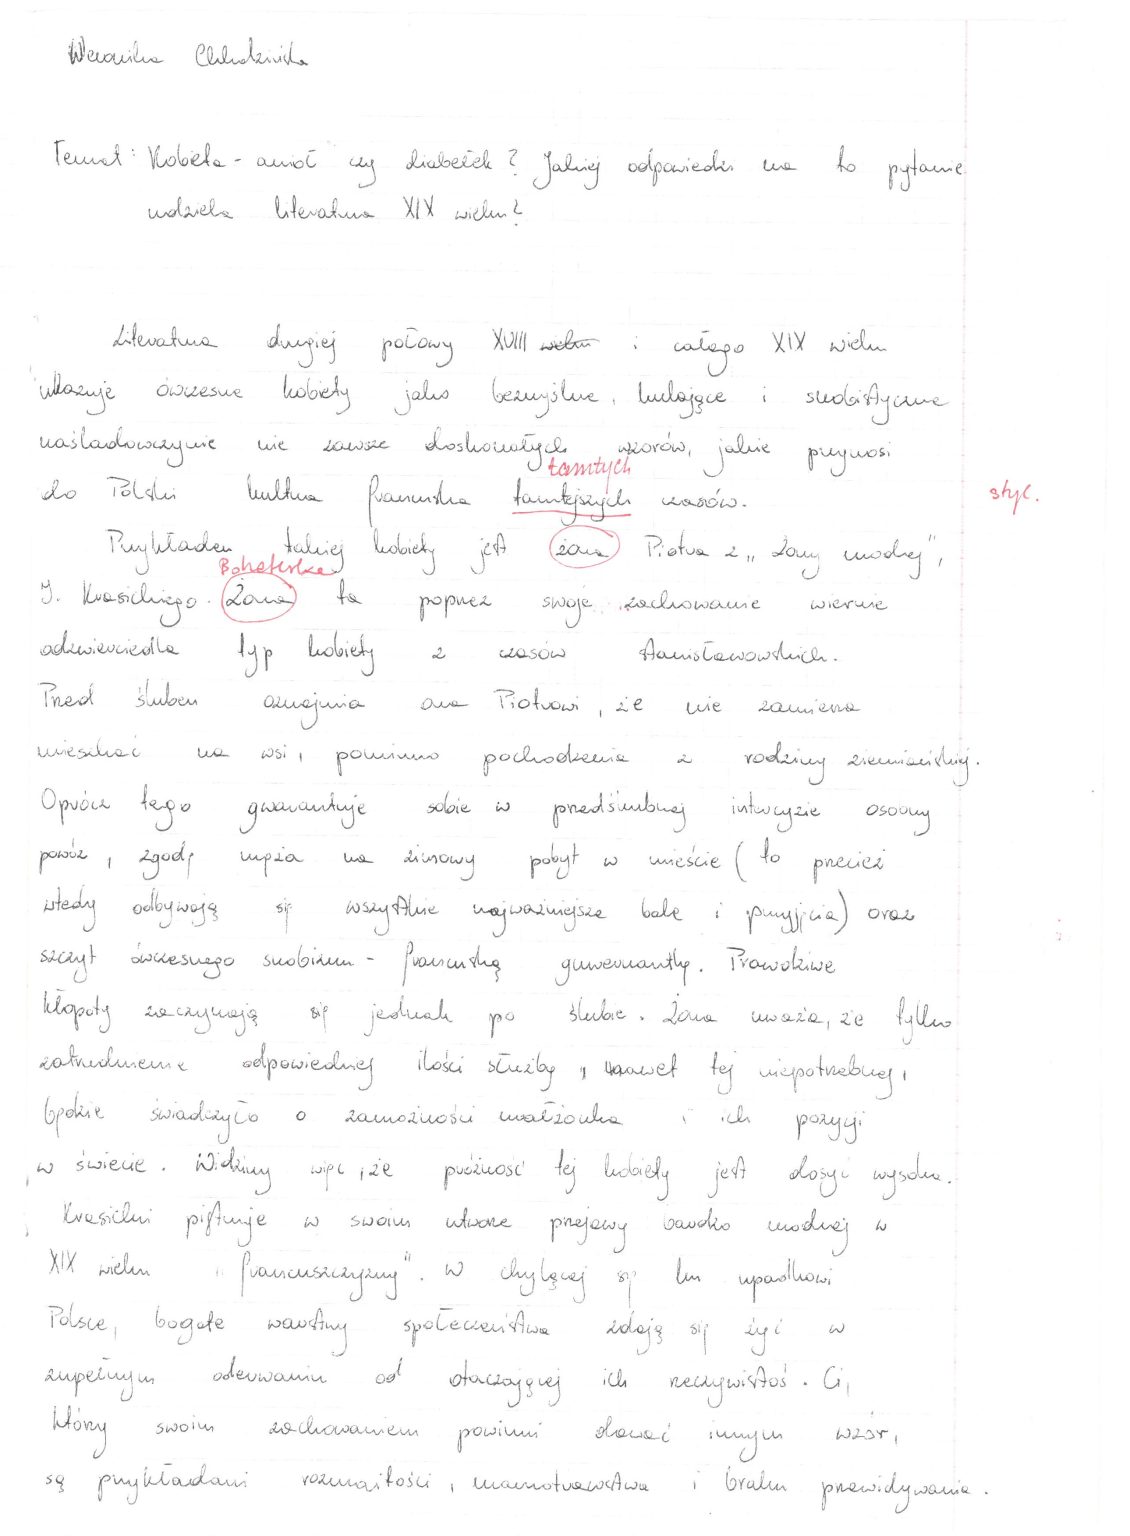 Weronika
Temat: Kobieta - anioł czy diabełek? Jakiej odpowiedzi na to pytanie
udziela literatura XIX wieku?
Literatura drugiej połowy XVIII wieku i całego XIX wieku
ukazuje ówczesne kobiety jako bezmyślne, hulające i snobistyczne
naśladowczynie nie zawsze doskonałych wzorów, jakie przynosi
tamtych
do Polski kultura francuska tamtejszych czasów.
styl.
Przykładem takiej kobiety jest żona Piotra z „Żony modnej",
Bohaterka
I. Krasickiego. Żona ta poprzez swoje zachowanie wiernie
odzwierciedla typ kobiety z czasów stanisławowskich.
Przed ślubem oznajmia ona Piotrowi, że nie zamierza
mieszkać na wsi, pomimo pochodzenia z rodziny ziemiańskiej.
Oprócz tego gwarantuje sobie w przedślubnej intercyzie osobny
powóz, zgodę męża na zimowy pobyt w mieście (to przecież
wtedy odbywają się wszystkie najważniejsze bale i przyjęcia) oraz
szczyt ówczesnego snobizmu - francuską guwernantkę. Prawdziwe
kłopoty zaczynają się jednak po ślubie. Żona uważa, że tylko
zatrudnienie odpowiedniej ilości służby, nawet tej niepotrzebnej,
będzie świadczyło o zamożności małżonka i ich pozycji
w świecie. Widzimy więc, że próżność tej kobiety jest dosyć wysoka.
Krasicki piętnuje w swoim utworze przejawy bardzo modnej w
XIX wieku „francuszczyzny". W chylącej się ku upadkowi
Polsce, bogate warstwy społeczeństwa zdają się żyć w
zupełnym oderwaniu od otaczającej ich rzeczywistoś. Ci,
którzy swoim zachowaniem powinni dawać innym wzór,
są przykładami rozmaitości, marnotrawstwa i braku przewidywania.